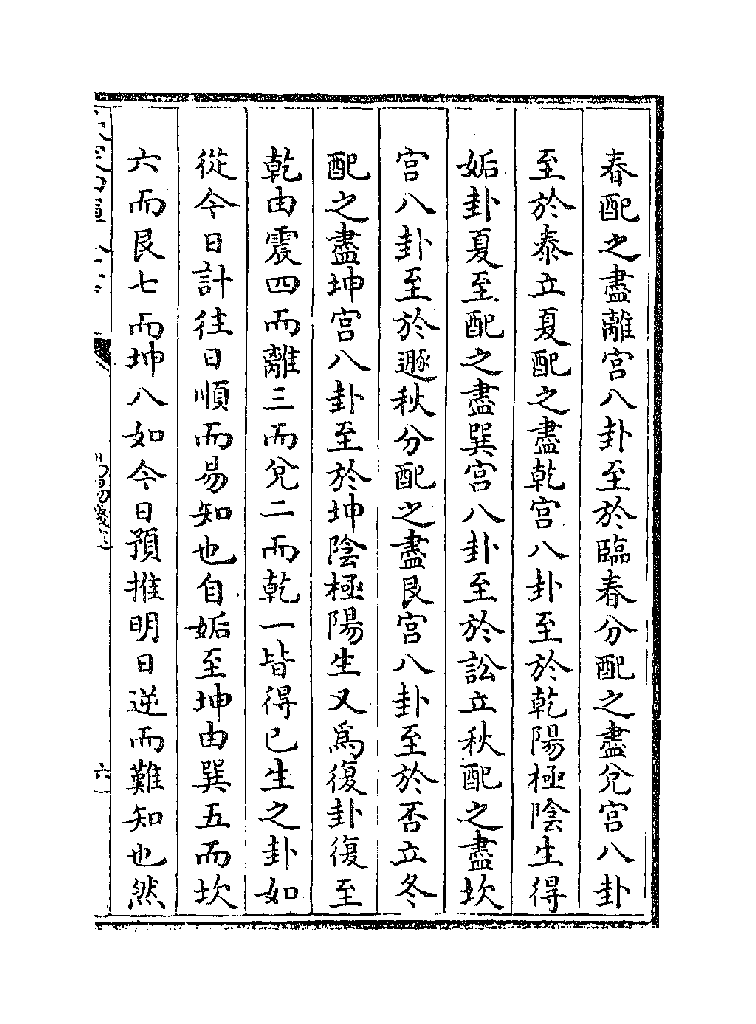 春配之盡離宮八卦至於臨春分配之盡兌宮八卦
至於泰立夏配之盡乾宮八卦至於乾陽極陰生得
姤卦夏至配之盡巽宮八卦至於訟立秋配之盡坎
宮八卦至於遯秋分配之盡艮宮八卦至於否立冬
配之盡坤宮八卦至於坤陰極陽生又為復卦復至
乾由震四而離三而兌二而乾一皆得已生之卦如
從今日計往日順而易知也自姤至坤由巽五而坎
六而艮七而坤八如今日預推明日逆而難知也然